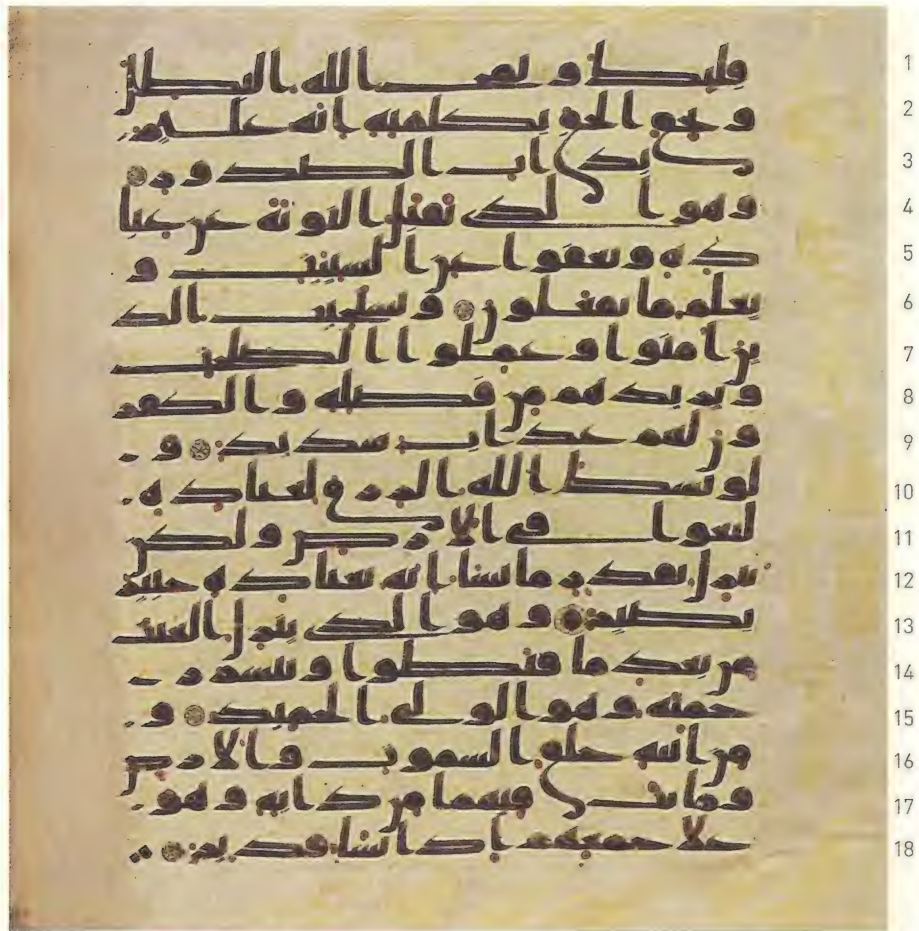 1 قلبك و يمح الله البطل
2 و يحق الحق بكلمته انه عليم
3 بذات الصدور
4 وهو الذي يقبل التوبة عن عبا
5 ده و يعفوا عن السيات و
6 يعلم ما تفعلون ويستجيب الذ
7 ين امنوا وعملوا الصلحت
8 ويزيدهم من فضله والكفر
9 ون لهم عذاب شديد و
10 لو بسط الله الرزق لعباده
11 لبغوا في الارض ولكن
12 ينزل بقدر ما يشا انه بعباده خبير
13 بصير وهو الذي ينزل الغيث
14 من بعد ما قنطوا وينشر ر
15 حمته وهو الولي الحميد و
16 من ايته خلق السموت والارض
17 وما بث فيهما من دابة وهو
18 على جمعهم اذا يشا قدير